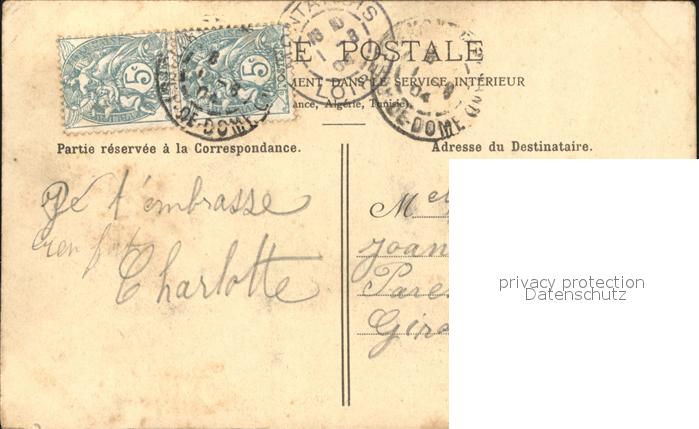 E POSTALE
MENT DANS LE SERVICE INTÉRIEUR
ance, Algérie, Tunisie)
5c
5c
DE-DOME
DE-DOME
Partie réservée à la Correspondance.
Adresse du Destinataire.
Je t'embrasse
Charlotte
Joan
Pare
Giro
privacy protection
Datenschutz